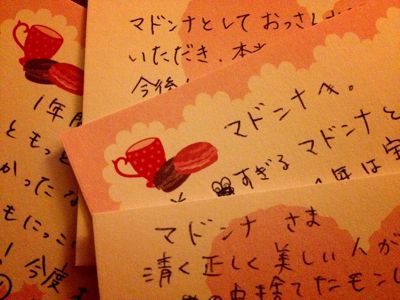 マドンナとして おっさん
いただき、本当
今後
1年間
ともっと
かったな
もにっこ
！今度
マドンナへ。
すぎる マドンナと
1年は宝
マドンナ さま
清く正しく美しい人が
捨てたモン